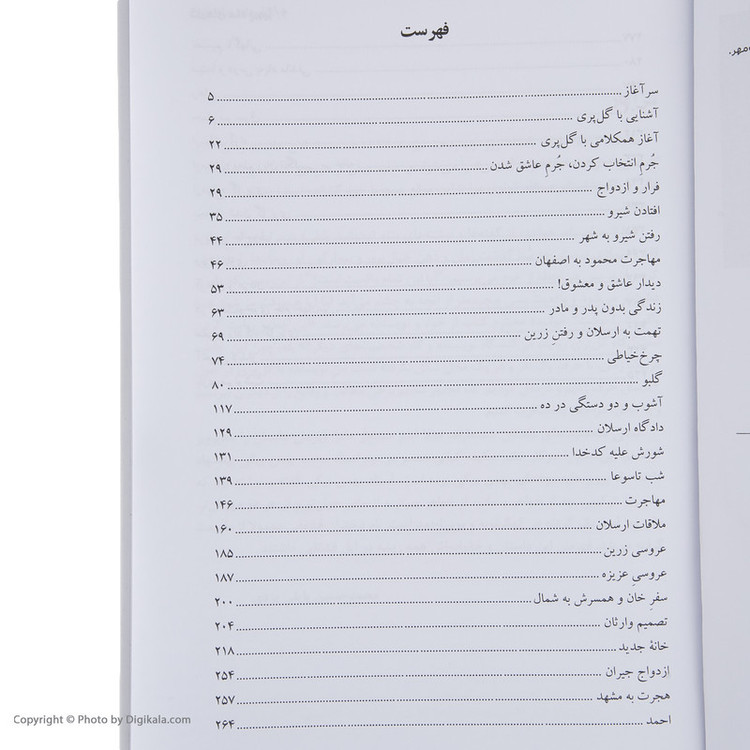 فهرست
سرآغاز ........ ۵
آشنایی با گل‌پری ........ ۶
آغاز همکلامی با گل‌پری ........ ۲۲
جُرمِ انتخاب کردن، جُرمِ عاشق شدن ........ ۲۹
فرار و ازدواج ........ ۲۹
افتادن شیرو ........ ۳۵
رفتن شیرو به شهر ........ ۴۴
مهاجرت محمود به اصفهان ........ ۴۶
دیدار عاشق و معشوق! ........ ۵۳
زندگی بدون پدر و مادر ........ ۶۳
تهمت به ارسلان و رفتنِ زرین ........ ۶۹
چرخ‌خیاطی ........ ۷۴
گلبو ........ ۸۰
آشوب و دو دستگی در ده ........ ۱۱۷
دادگاه ارسلان ........ ۱۲۹
شورش علیه کدخدا ........ ۱۳۱
شب تاسوعا ........ ۱۳۹
مهاجرت ........ ۱۴۶
ملاقات ارسلان ........ ۱۶۰
عروسی زرین ........ ۱۸۵
عروسیِ عزیزه ........ ۱۸۷
سفرِ خان و همسرش به شمال ........ ۲۰۰
تصمیم وارثان ........ ۲۰۴
خانهٔ جدید ........ ۲۱۸
ازدواج جیران ........ ۲۵۴
هجرت به مشهد ........ ۲۵۷
احمد ........ ۲۶۴
Copyright © Photo by Digikala.com